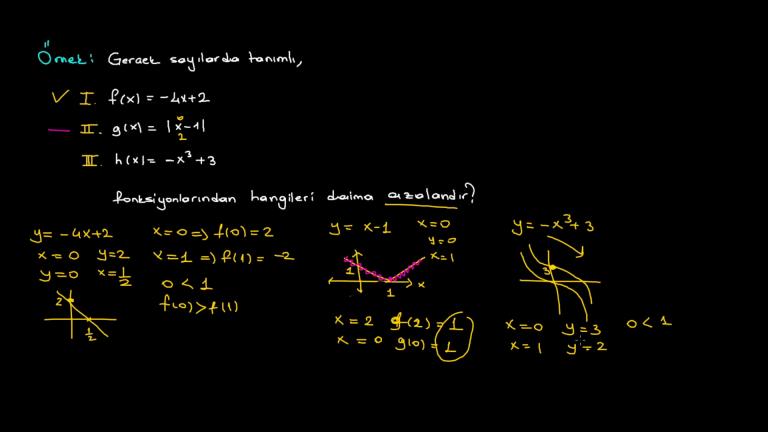 Örnek: Gerçek sayılarda tanımlı,
✓ I. f(x) = -4x+2
— II. g(x) = |x-1|
0
2
III. h(x) = -x³+3
fonksiyonlarından hangileri daima azalandır?
y = -4x+2
x=0 y=2
y=0 x=1/2
2
1/2
x=0 => f(0) = 2
x=1 => f(1) = -2
0 < 1
f(0) > f(1)
y = x-1
x=0
y=0
x=1
1
1 x
x=2 g(2) = 1
x=0 g(0) = 1
y = -x³+3
3
x=0 y=3 0 < 1
x=1 y=2